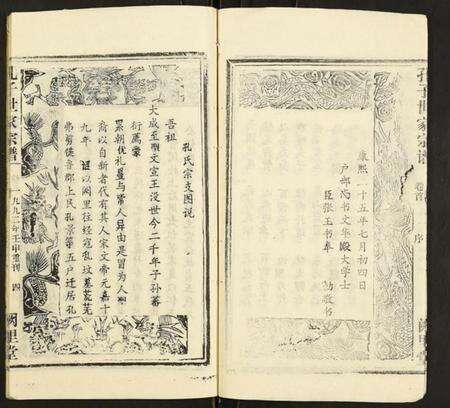 孔子世家宗谱 卷首 序 阙里堂
康熙一十五年七月初四日
户部尚书文华殿大学士
臣张玉书奉 勅敬书
孔氏宗支图说
吾祖
大成至聖文宣王没世今二千年子孙蕃
衍属蒙
累朝优礼曼与常人异由是冒为人
裔以自新者代有其人宋文帝元嘉十
九年 诏以阙里往经寇乱坟墓荒芜
弗剪徒鲁郡上民孔景等五户迁居孔
孔子世家宗谱 一九九二年壬申重刊 四 阙里堂